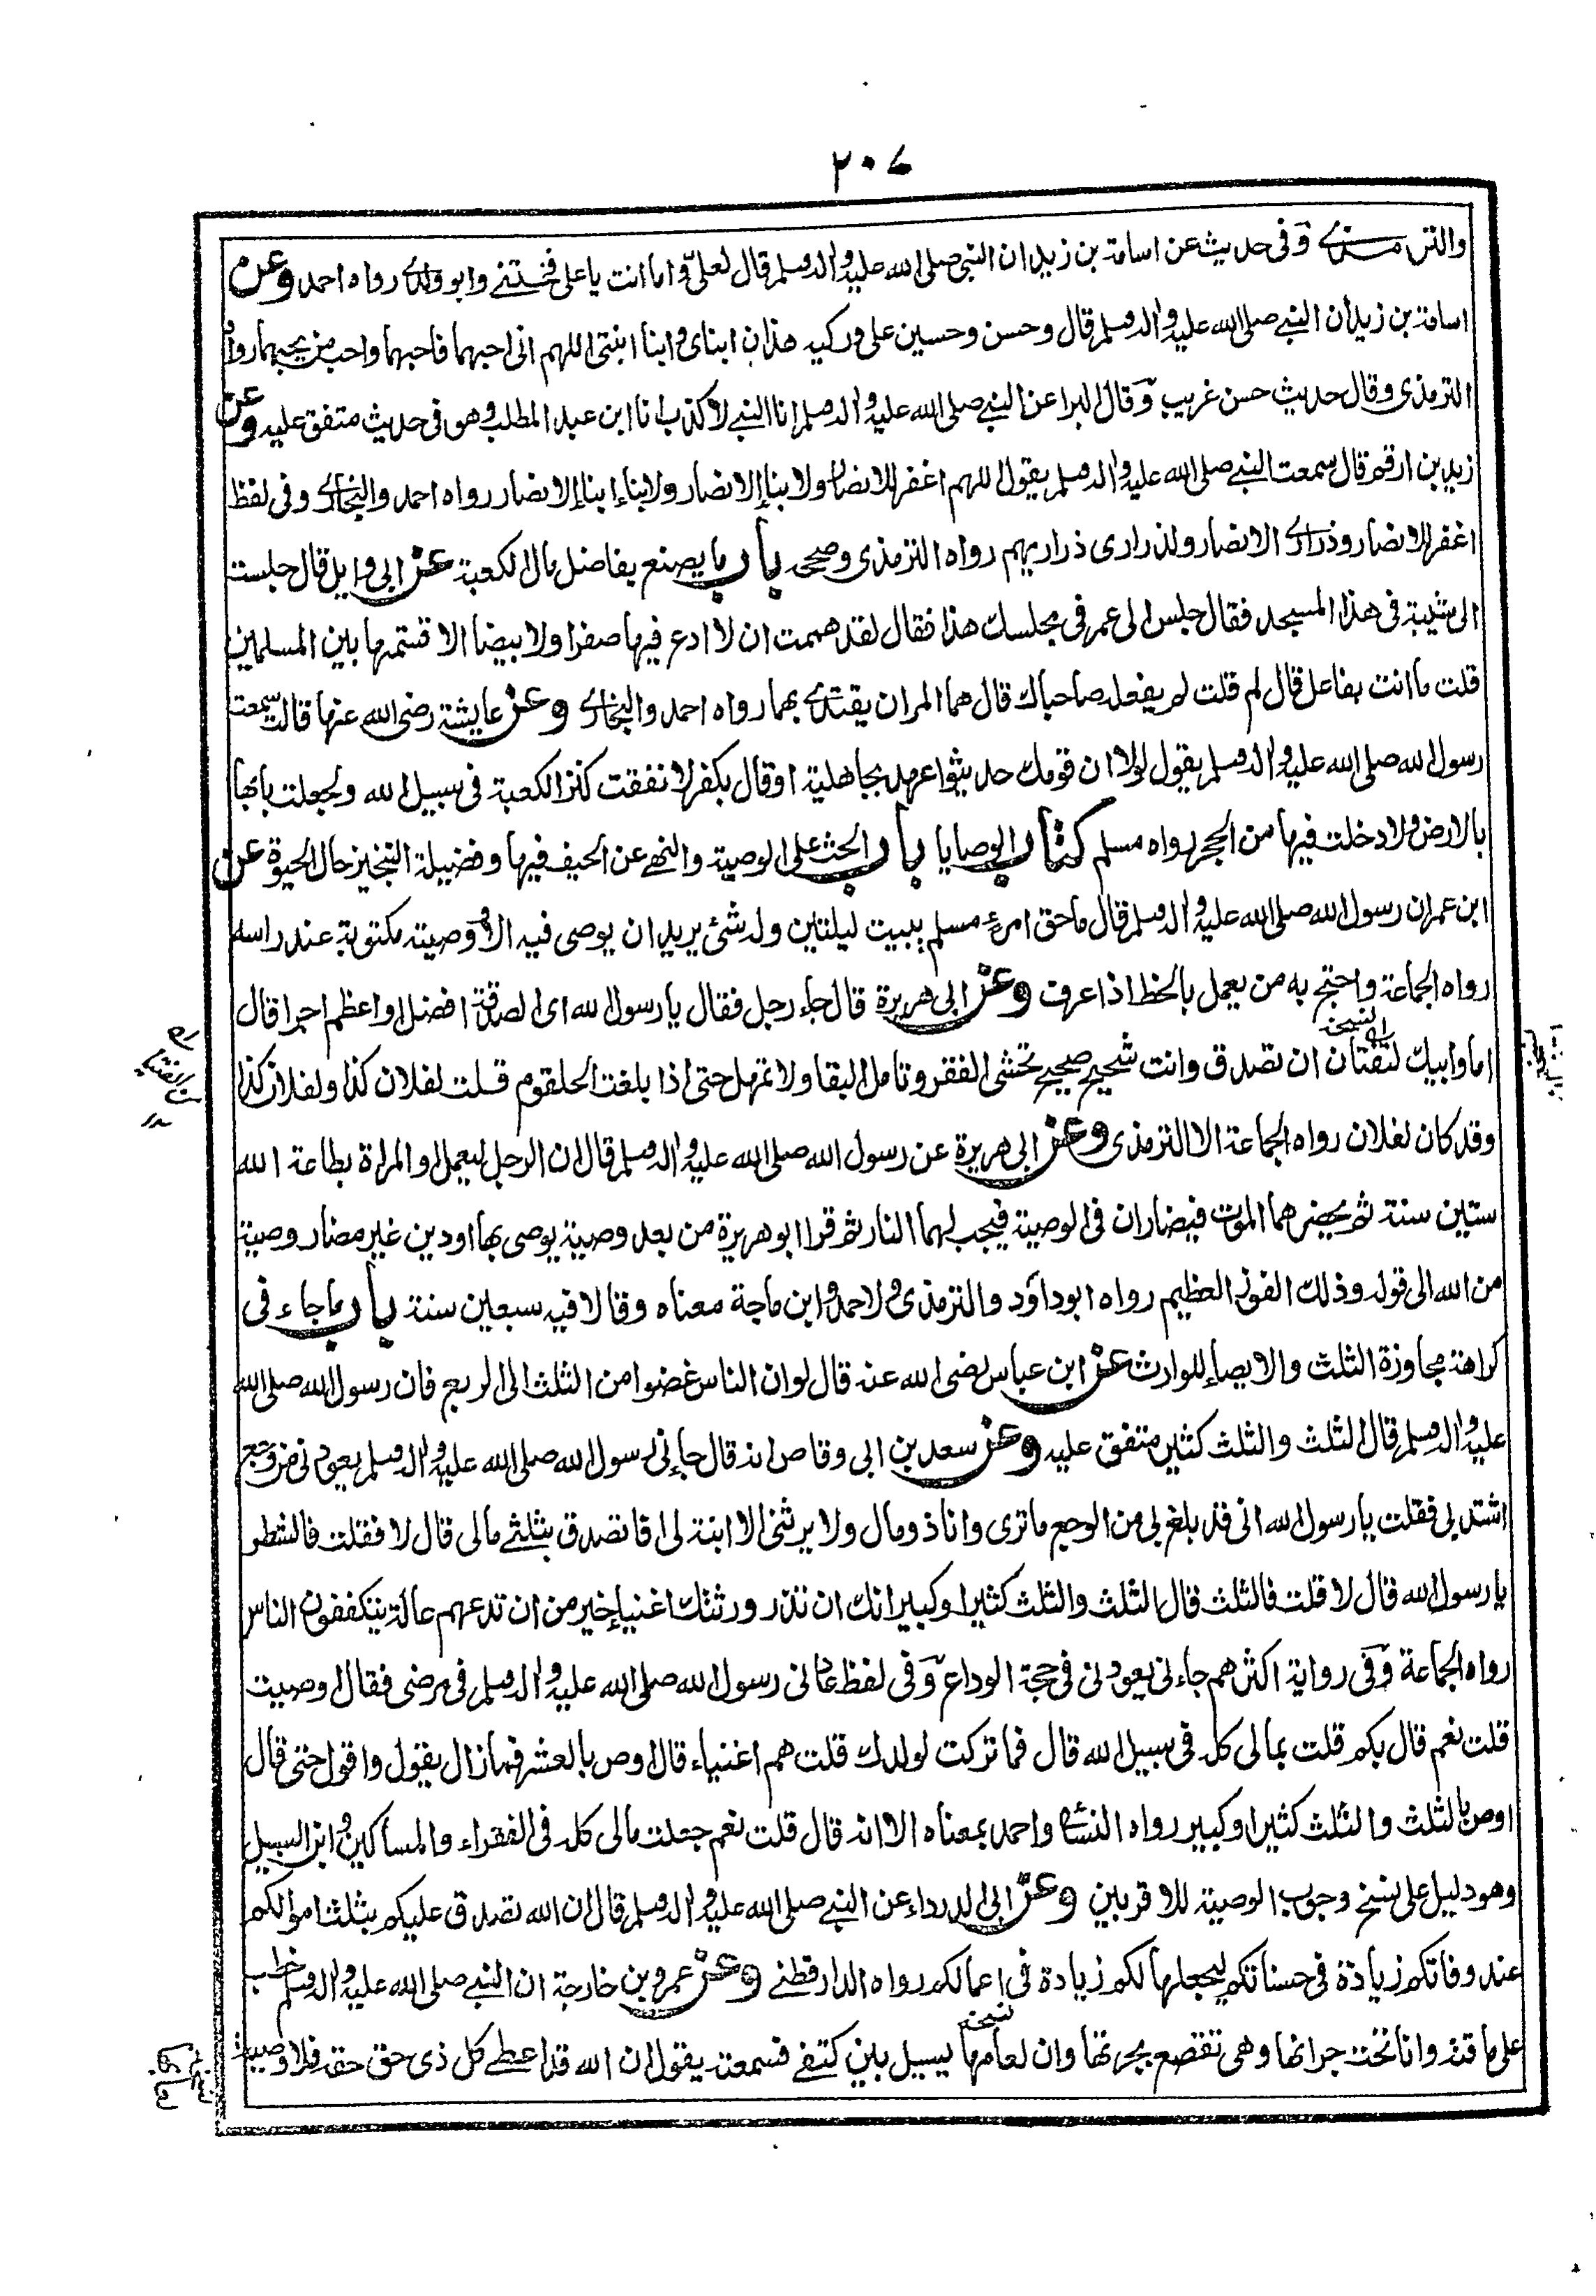 ٢٠٧
والترمذي وفى حديث عن اسامة بن زيد ان النبي صلى الله عليه واله وسلم قال لعلي واما انت يا على فختنى وابو ولدى رواه احمد وعن
اسامة بن زيد ان النبي صلى الله عليه واله وسلم قال وحسن وحسين على وركيه هذان ابناى وابنا ابنتى اللهم انى احبهما فاحبهما واحب من يحبهما رواه
الترمذى وقال حديث حسن غريب وقال البرا عن النبي صلى الله عليه واله وسلم انا النبي لا كذب انا ابن عبد المطلب وهو فى حديث متفق عليه وعن
زيد بن ارقم قال سمعت النبي صلى الله عليه واله وسلم يقول اللهم اغفر للانصار ولابناء الانصار ولابناء ابناء الانصار رواه احمد والبخارى وفى لفظ
اغفر للانصار وذرارى الانصار ولذرارى ذراريهم رواه الترمذى وصححه باب ما يصنع بفاضل مال الكعبة عن ابى وايل قال جلست
الى شيبة فى هذا المسجد فقال جلس الى عمر فى مجلسك هذا فقال لقد هممت ان لا ادع فيها صفرا ولا بيضا الا قسمتها بين المسلمين
قلت ما انت بفاعل قال لم قلت لم يفعله صاحباك قال هما المران يقتدى بهما رواه احمد والبخارى وعن عايشة رضى الله عنها قالت سمعت
رسول الله صلى الله عليه واله وسلم يقول لولا ان قومك حديثوا عهد بجاهلية او قال بكفر لانفقت كنز الكعبة فى سبيل الله ولجعلت بابها
بالارض ولادخلت فيها من الحجر رواه مسلم كتاب الوصايا باب الحث على الوصية والنهى عن الحيف فيها وفضيلة التنجيز حال الحيوة عن
ابن عمر ان رسول الله صلى الله عليه واله وسلم قال ما حق امرء مسلم يبيت ليلتين وله شئ يريد ان يوصى فيه الا ووصيته مكتوبة عند راسه
رواه الجماعة واحتج به من يعمل بالخط اذا عرف وعن ابى هريرة قال جاء رجل فقال يا رسول الله اى الصدقة افضل او اعظم اجرا قال
اما وابيك لتفتان ان تصدق وانت شحيح صحيح تخشى الفقر وتامل البقا ولا تمهل حتى اذا بلغت الحلقوم قلت لفلان كذا ولفلان كذا
وقد كان لفلان رواه الجماعة الا الترمذى وعن ابى هريرة عن رسول الله صلى الله عليه واله وسلم قال ان الرجل ليعمل او المراة بطاعة الله
ستين سنة ثم يحضرهما الموت فيضاران فى الوصية فيجب لهما النار ثم قرا ابو هريرة من بعد وصية يوصى بها او دين غير مضار وصية
من الله الى قوله وذلك الفوز العظيم رواه ابو داود والترمذى ولاحمد وابن ماجة معناه وقالا فيه سبعين سنة باب ما جاء فى
كراهة مجاوزة الثلث والايصاء للوارث عن ابن عباس رضى الله عنه قال لو ان الناس غضوا من الثلث الى الربع فان رسول الله صلى الله
عليه واله وسلم قال الثلث والثلث كثير متفق عليه وعن سعد بن ابى وقاص انه قال جاءنى رسول الله صلى الله عليه واله وسلم يعودنى من وجع
اشتد بى فقلت يا رسول الله انى قد بلغ بى من الوجع ما ترى وانا ذو مال ولا يرثنى الا ابنة لى افاتصدق بثلثى مالى قال لا فقلت فالشطر
يا رسول الله قال لا قلت فالثلث قال الثلث والثلث كثير او كبير انك ان تذر ورثتك اغنياء خير من ان تدعهم عالة يتكففون الناس
رواه الجماعة وفى رواية اكثرهم جاءنى يعودنى فى حجة الوداع وفى لفظ عادنى رسول الله صلى الله عليه واله وسلم فى مرضى فقال اوصيت
قلت نعم قال بكم قلت بمالى كله فى سبيل الله قال فما تركت لولدك قلت هم اغنياء قال اوص بالعشر فما زال يقول واقول حتى قال
اوص بالثلث والثلث كثير او كبير رواه النسائى واحمد بمعناه الا انه قال قلت نعم جعلت مالى كله فى الفقراء والمساكين وابن السبيل
وهو دليل على نسخ وجوب الوصية للاقربين وعن ابى الدرداء عن النبي صلى الله عليه واله وسلم قال ان الله تصدق عليكم بثلث اموالكم
عند وفاتكم زيادة فى حسناتكم ليجعلها لكم زيادة فى اعمالكم رواه الدارقطنى وعن عمرو بن خارجة ان النبي صلى الله عليه واله وسلم خطب
على ناقته وانا تحت جرانها وهى تقصع بجرتها وان لعابها يسيل بين كتفى فسمعته يقول ان الله قد اعطى كل ذى حق حقه فلا وصية